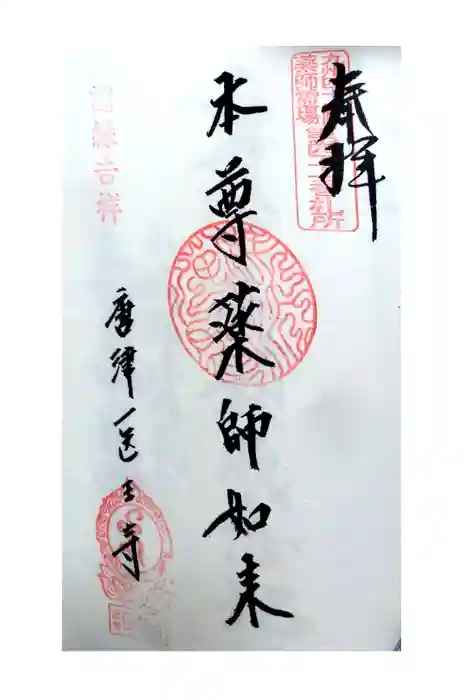 奉拝
九州四十九院
薬師霊場第四十二番札所
本尊薬師如来
唐津医王寺
縁吉祥